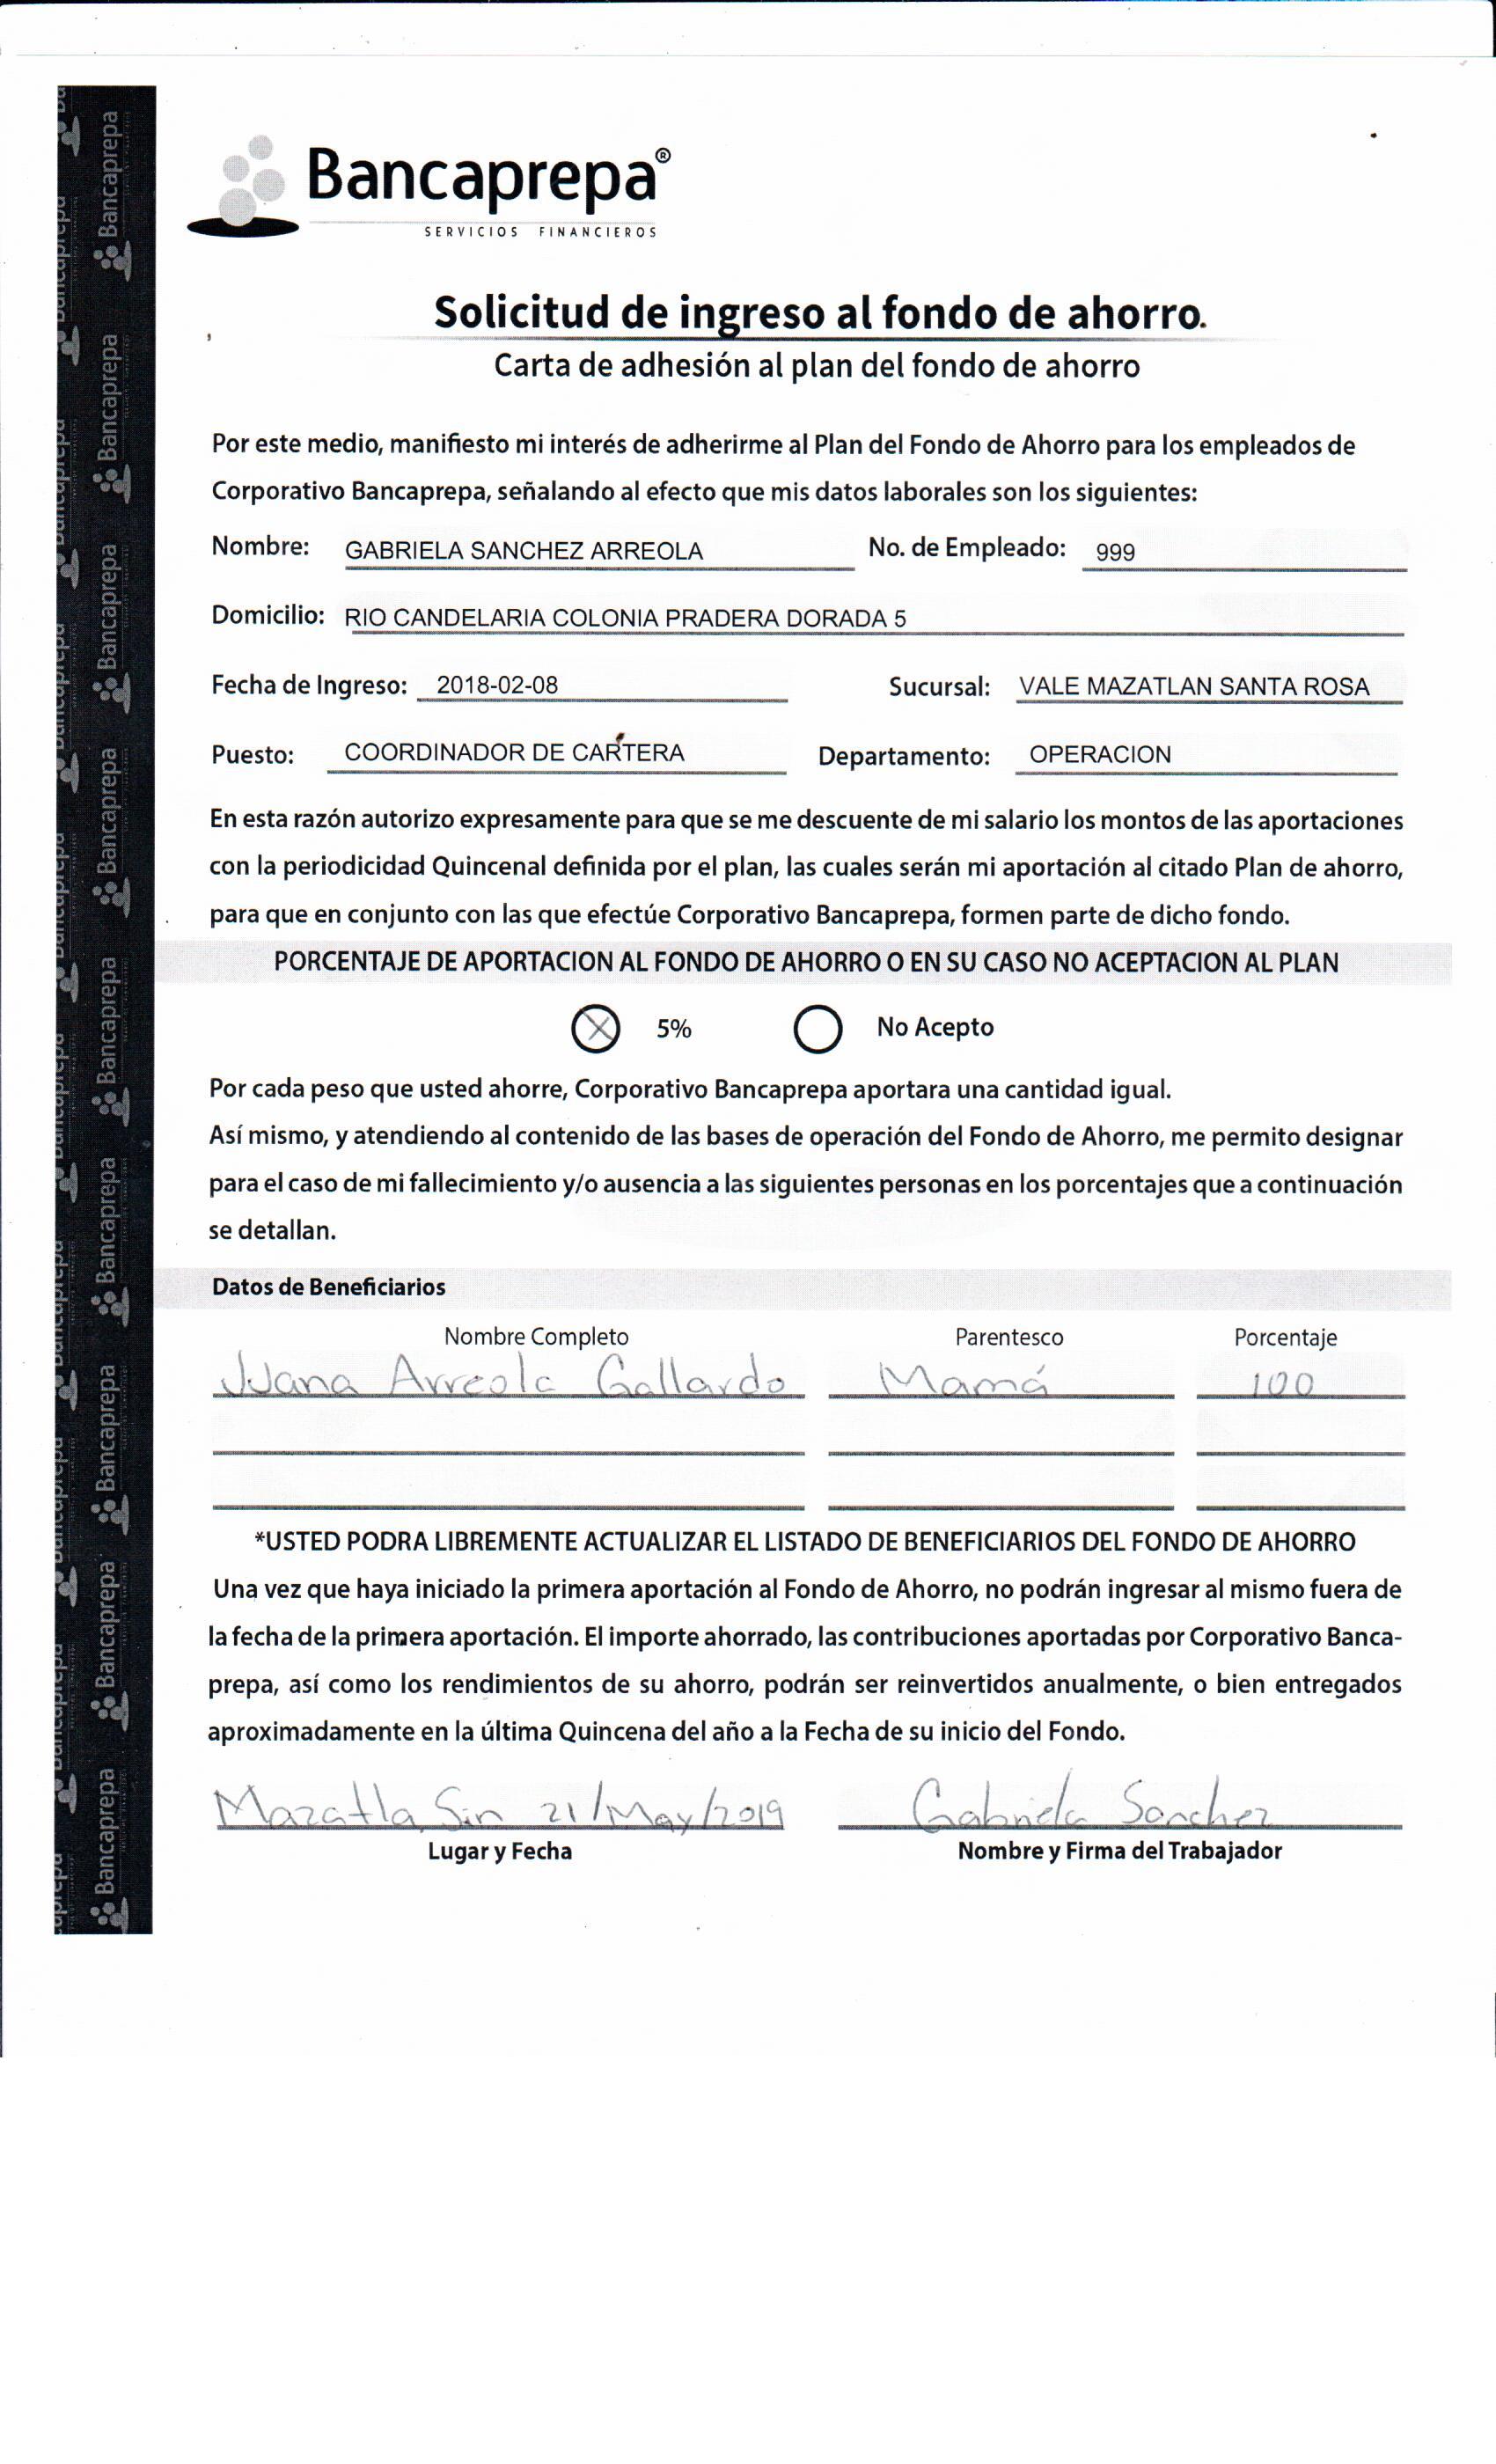 Bancaprepa®
SERVICIOS FINANCIEROS
Solicitud de ingreso al fondo de ahorro.
Carta de adhesión al plan del fondo de ahorro
Por este medo, manifiesto mi interés de adherirme al Plan del Fondo de Ahorro para los empleados de
Corporativo Bancaprepa, señalando al efecto que mis datos laborales son los siguientes:
Nombre: GABRIELA SANCHEZ ARREOLA No. de Empleado: 999
Domicilio: RIO CANDELARIA COLONIA PRADERA DORADA 5
Fecha de Ingreso: 2018-02-08 Sucursal: VALE MAZATLAN SANTA ROSA
Puesto: COORDINADOR DE CARTERA Departamento: OPERACION
En esta razón autorizo expresamente para que se me descuente de mi salario los montos de las aportaciones
con la periodicidad Quincenal definida por el plan, las cuales serán mi aportación al citado Plan de ahorro,
para que en conjunto con las que efectúe Corporativo Bancaprepa, formen parte de dicho fondo.
PORCENTAJE DE APORTACION AL FONDO DE AHORRO O EN SU CASO NO ACEPTACION AL PLAN
X 5% No Acepto
Por cada peso que usted ahorre, Corporativo Bancaprepa aportara una cantidad igual.
Así mismo, y atendiendo al contenido de las bases de operación del Fondo de Ahorro, me permito designar
para el caso de mi fallecimiento y/o ausencia a las siguientes personas en los porcentajes que a continuación
se detallan.
Datos de Beneficiarios
Nombre Completo Parentesco Porcentaje
Juana Arreola Gallardo Mamá 100
*USTED PODRA LIBREMENTE ACTUALIZAR EL LISTADO DE BENEFICIARIOS DEL FONDO DE AHORRO
Una vez que haya iniciado la primera aportación al Fondo de Ahorro, no podrán ingresar al mismo fuera de
la fecha de la primera aportación. El importe ahorrado, las contribuciones aportadas por Corporativo Banca-
prepa, así como los rendimientos de su ahorro, podrán ser reinvertidos anualmente, o bien entregados
aproximadamente en la última Quincena del año a la Fecha de su inicio del Fondo.
Mazatla, Sin 21/May/2019 Gabriela Sanchez
Lugar y Fecha Nombre y Firma del Trabajador